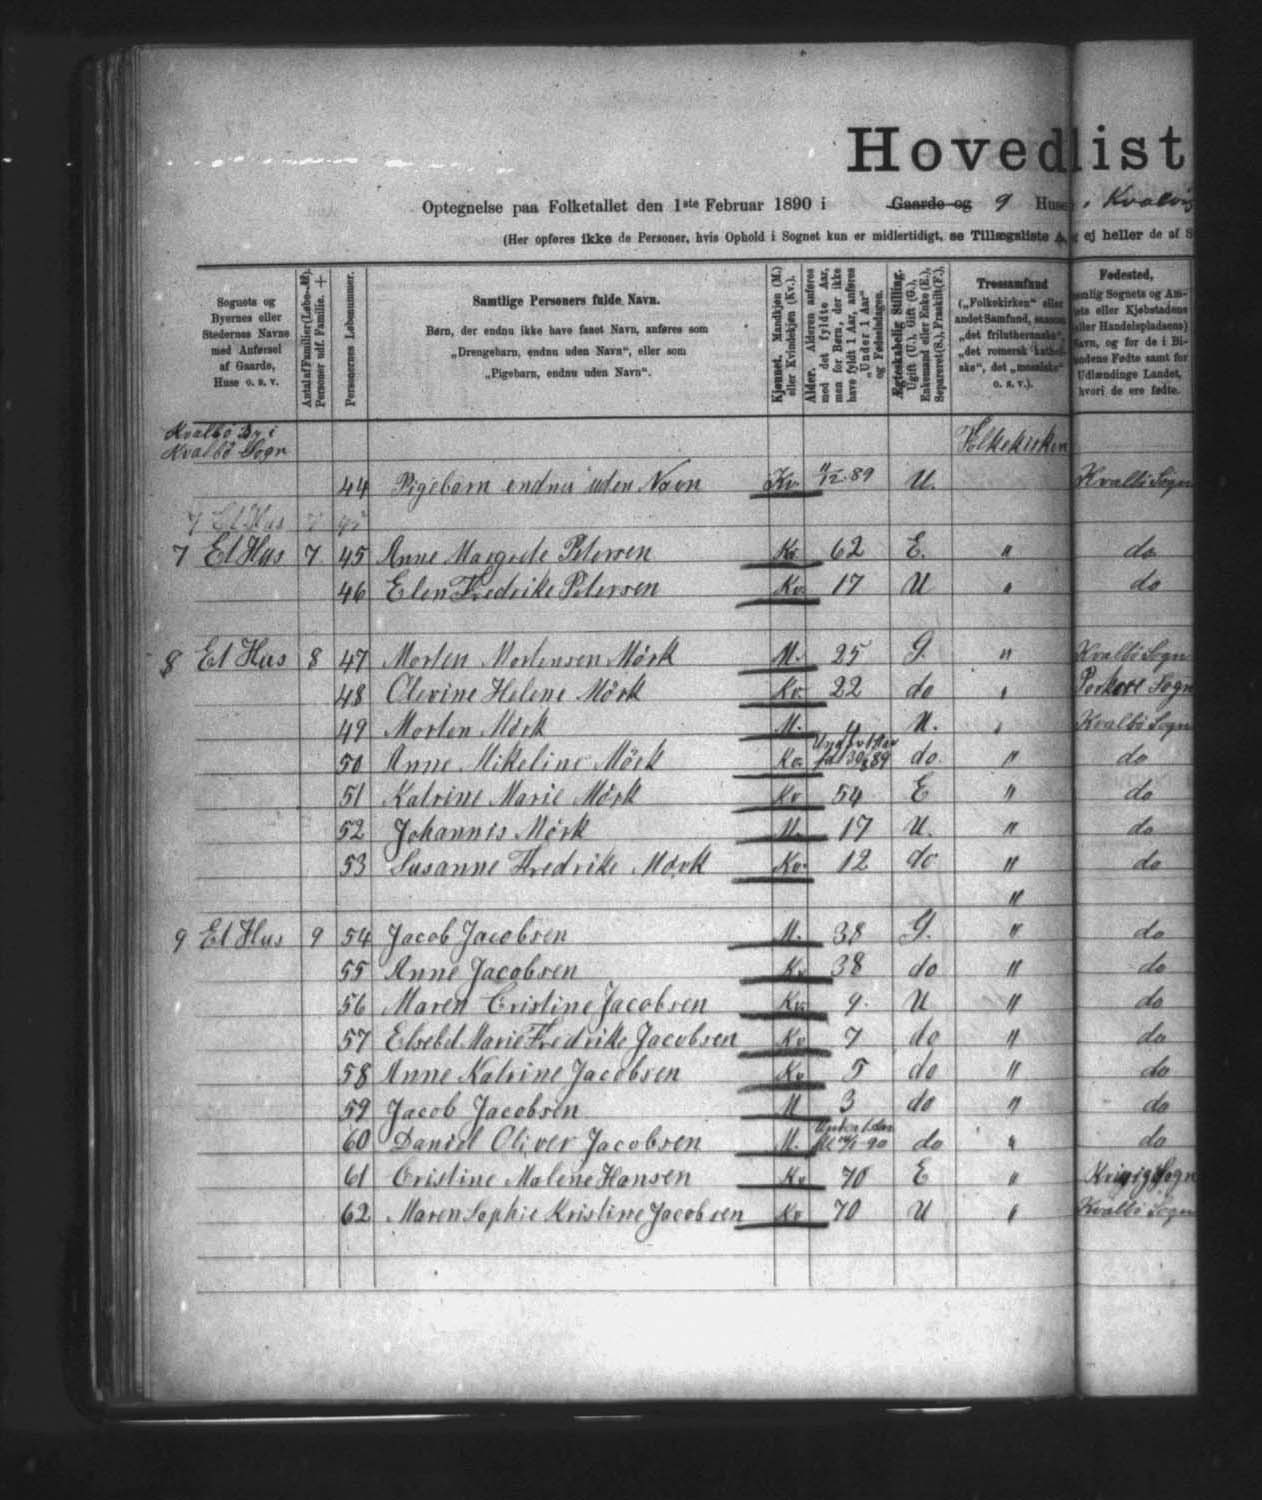 Hovedlist
Optegnelse paa Folketallet den 1ste Februar 1890 i Gaarde og 9 Huse i Kvalvig
(Her opføres ikke de Personer, hvis Ophold i Sognet kun er midlertidigt, se Tillægsliste A, ej heller de af S
Sognets og Byernes eller Stedernes Navne med Anførsel af Gaarde, Huse o. s. v.
Antal af Familier (Løbe-№). Personer udf. Familie. +
Personernes Løbenummer.
Samtlige Personers fulde Navn.
Børn, der endnu ikke have faaet Navn, anføres som
„Drengebarn, endnu uden Navn“, eller som
„Pigebarn, endnu uden Navn“.
Kjønnet. Mandkjøn (M.) eller Kvindekjøn (Kv.).
Alder. Alderen anføres med det fyldte Aar, men for Børn, der ikke have fyldt 1 Aar, anføres „Under 1 Aar“ og Fødselsdagen.
Ægteskabelig Stilling. Ugift (U.), Gift (G.), Enkemand eller Enke (E.), Separeret (S.), Fraskilt (F.).
Trossamfund („Folkekirken“ eller andet Samfund, saasom „det frilutherske“, „det romersk katholske“, det „mosaiske“ o. s. v.).
Fødested,
Sognets og Am-
eller Kjøbstadens
eller Handelspladsens)
Navn, og for de i Bi-
landene Fødte samt for
Udlændinge Landet,
hvori de ere fødte.
Kvalbö By i Folkekirken
Kvalbö Sogn
44 Pigebarn endnu uden Navn Kv. 89 U. Kvalbö Sogn
7 Et Hus 7 45
7 Et Hus 7 45 Anne Margrete Petersen Kv. 62 E. " do
46 Elen Fredrike Petersen Kv. 17 U " do
8 Et Hus 8 47 Morten Mortensen Mörk M. 25 G. " Kvalbö Sogn
48 Olevine Helene Mörk Kv. 22 do " Porkere Sogn
49 Morten Mörk M. 4 U. " Kvalbö Sogn
50 Anne Mikeline Mörk Kv. Und 1 Aar 89 do. " do
51 Katrine Marie Mörk Kv 54 E " do
52 Johannis Mörk M. 17 U. " do
53 Susanne Fredrike Mörk Kv. 12 do " do
"
9 Et Hus 9 54 Jacob Jacobsen M. 38 G. " do
55 Anne Jacobsen Kv 38 do " do
56 Maren Cristine Jacobsen Kv. 9. U " do
57 Elsebet Marie Fredrike Jacobsen Kv 7 do " do
58 Anne Katrine Jacobsen Kv 5 do " do
59 Jacob Jacobsen M 3 do " do
60 Daniel Oliver Jacobsen M. Under 1 Aar 90 do " do
61 Cristine Malene Hansen Kv 70 E " Sogn
62 Maren Sophie Kristine Jacobsen Kv 70 U " Kvalbö Sogn